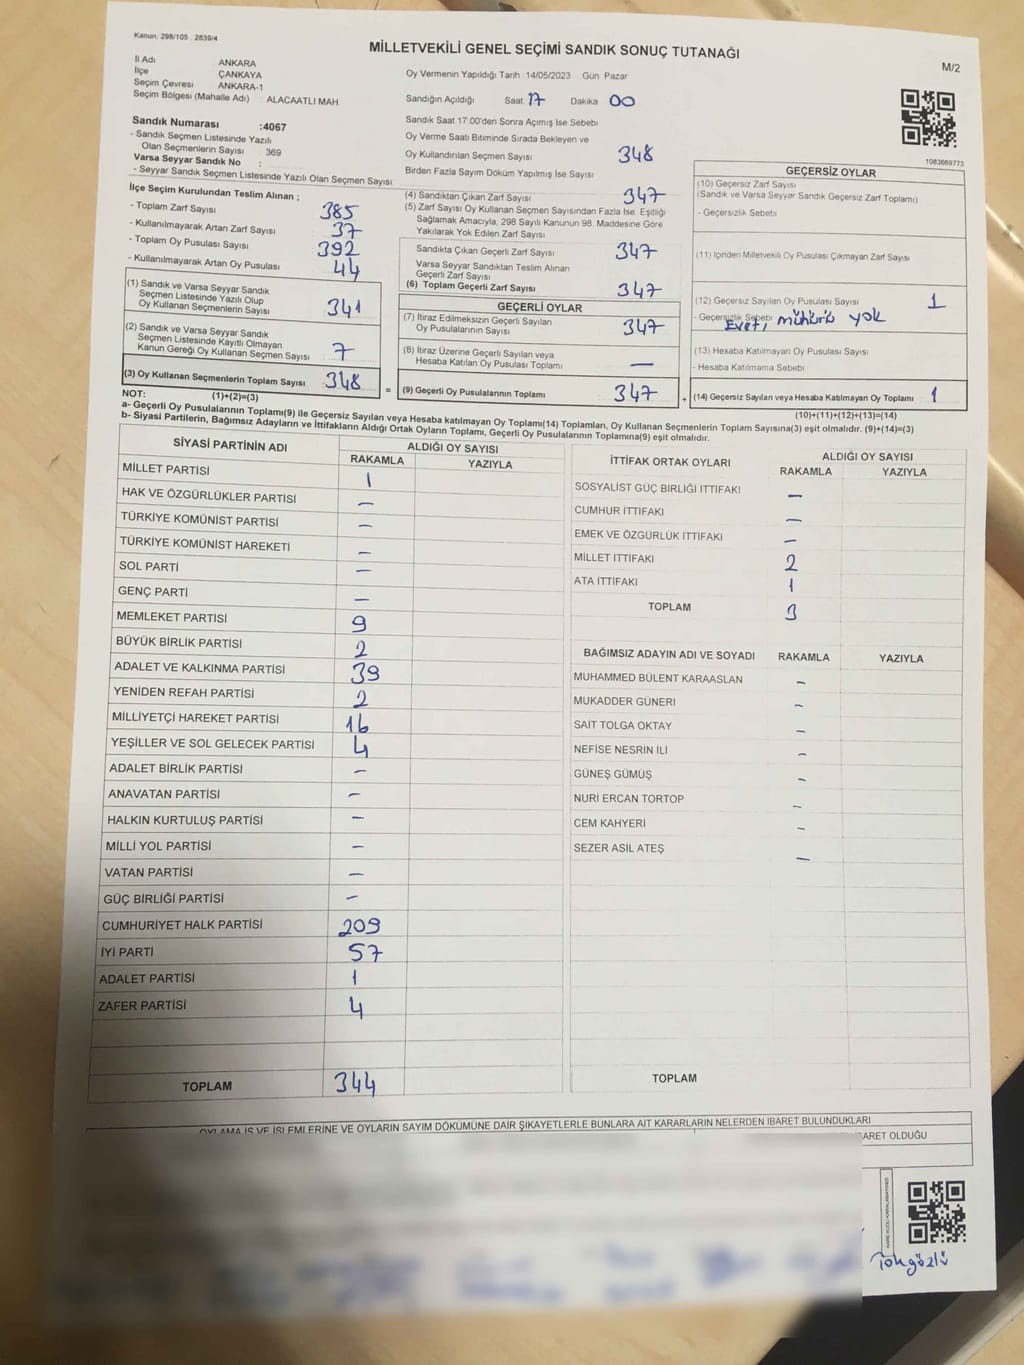 Kanun. 298/105 . 2839/4
MİLLETVEKİLİ GENEL SEÇİMİ SANDIK SONUÇ TUTANAĞI
M/2
İl Adı ANKARA
İlçe ÇANKAYA
Seçim Çevresi ANKARA-1
Seçim Bölgesi (Mahalle Adı) : ALACAATLI MAH.
Sandık Numarası :4067
- Sandık Seçmen Listesinde Yazılı
Olan Seçmenlerin Sayısı : 369
Varsa Seyyar Sandık No :
- Seyyar Sandık Seçmen Listesinde Yazılı Olan Seçmen Sayısı
İlçe Seçim Kurulundan Teslim Alınan ;
- Toplam Zarf Sayısı 385
- Kullanılmayarak Artan Zarf Sayısı 37
- Toplam Oy Pusulası Sayısı 392
- Kullanılmayarak Artan Oy Pusulası 44
(1) Sandık ve Varsa Seyyar Sandık
Seçmen Listesinde Yazılı Olup
Oy Kullanan Seçmenlerin Sayısı 341
(2) Sandık ve Varsa Seyyar Sandık
Seçmen Listesinde Kayıtlı Olmayan
Kanun Gereği Oy Kullanan Seçmen Sayısı 7
(3) Oy Kullanan Seçmenlerin Toplam Sayısı 348
Oy Vermenin Yapıldığı Tarih 14/05/2023 Gün. Pazar
Sandığın Açıldığı Saat. 17 Dakika 00
Sandık Saat 17:00'den Sonra Açılmış İse Sebebi
Oy Verme Saati Bitiminde Sırada Bekleyen ve
Oy Kullandırılan Seçmen Sayısı 348
Birden Fazla Sayım Döküm Yapılmış İse Sayısı
(4) Sandıktan Çıkan Zarf Sayısı 347
(5) Zarf Sayısı Oy Kullanan Seçmen Sayısından Fazla İse. Eşitliği
Sağlamak Amacıyla, 298 Sayılı Kanunun 98. Maddesine Göre
Yakılarak Yok Edilen Zarf Sayısı
Sandıkta Çıkan Geçerli Zarf Sayısı 347
Varsa Seyyar Sandıktan Teslim Alınan
Geçerli Zarf Sayısı
(6) Toplam Geçerli Zarf Sayısı 347
GEÇERLİ OYLAR
(7) İtiraz Edilmeksizin Geçerli Sayılan
Oy Pusulalarının Sayısı 347
(8) İtiraz Üzerine Geçerli Sayılan veya
Hesaba Katılan Oy Pusulası Toplamı —
= (9) Geçerli Oy Pusulalarının Toplamı 347
1083669773
GEÇERSİZ OYLAR
(10) Geçersiz Zarf Sayısı
(Sandık ve Varsa Seyyar Sandık Geçersiz Zarf Toplamı)
- Geçersizlik Sebebi
(11) İçinden Milletvekili Oy Pusulası Çıkmayan Zarf Sayısı
(12) Geçersiz Sayılan Oy Pusulası Sayısı 1
- Geçersizlik Sebebi Evet, mührü yok
(13) Hesaba Katılmayan Oy Pusulası Sayısı
- Hesaba Katılmama Sebebi
+ (14) Geçersiz Sayılan veya Hesaba Katılmayan Oy Toplamı 1
NOT: (1)+(2)=(3)
(10)+(11)+(12)+(13)=(14)
a- Geçerli Oy Pusulalarının Toplamı(9) ile Geçersiz Sayılan veya Hesaba katılmayan Oy Toplamı(14) Toplamları, Oy Kullanan Seçmenlerin Toplam Sayısına(3) eşit olmalıdır. (9)+(14)=(3)
b- Siyasi Partilerin, Bağımsız Adayların ve İttifakların Aldığı Ortak Oyların Toplamı, Geçerli Oy Pusulalarının Toplamına(9) eşit olmalıdır.
SİYASİ PARTİNİN ADI ALDIĞI OY SAYISI
RAKAMLA YAZIYLA
MİLLET PARTİSİ 1
HAK VE ÖZGÜRLÜKLER PARTİSİ —
TÜRKİYE KOMÜNİST PARTİSİ —
TÜRKİYE KOMÜNİST HAREKETİ —
SOL PARTİ —
GENÇ PARTİ —
MEMLEKET PARTİSİ 9
BÜYÜK BİRLİK PARTİSİ 2
ADALET VE KALKINMA PARTİSİ 39
YENİDEN REFAH PARTİSİ 2
MİLLİYETÇİ HAREKET PARTİSİ 16
YEŞİLLER VE SOL GELECEK PARTİSİ 4
ADALET BİRLİK PARTİSİ —
ANAVATAN PARTİSİ —
HALKIN KURTULUŞ PARTİSİ —
MİLLİ YOL PARTİSİ —
VATAN PARTİSİ —
GÜÇ BİRLİĞİ PARTİSİ —
CUMHURİYET HALK PARTİSİ 209
İYİ PARTİ 57
ADALET PARTİSİ 1
ZAFER PARTİSİ 4
TOPLAM 344
İTTİFAK ORTAK OYLARI ALDIĞI OY SAYISI
RAKAMLA YAZIYLA
SOSYALİST GÜÇ BİRLİĞİ İTTİFAKI —
CUMHUR İTTİFAKI —
EMEK VE ÖZGÜRLÜK İTTİFAKI —
MİLLET İTTİFAKI 2
ATA İTTİFAKI 1
TOPLAM 3
BAĞIMSIZ ADAYIN ADI VE SOYADI RAKAMLA YAZIYLA
MUHAMMED BÜLENT KARAASLAN —
MUKADDER GÜNERİ —
SAİT TOLGA OKTAY —
NEFİSE NESRİN İLİ —
GÜNEŞ GÜMÜŞ —
NURİ ERCAN TORTOP —
CEM KAHYERİ —
SEZER ASIL ATEŞ —
TOPLAM
OYLAMA İŞ VE İŞLEMLERİNE VE OYLARIN SAYIM DÖKÜMÜNE DAİR ŞİKAYETLERLE BUNLARA AİT KARARLARIN NELERDEN İBARET BULUNDUKLARI
İBARET OLDUĞU